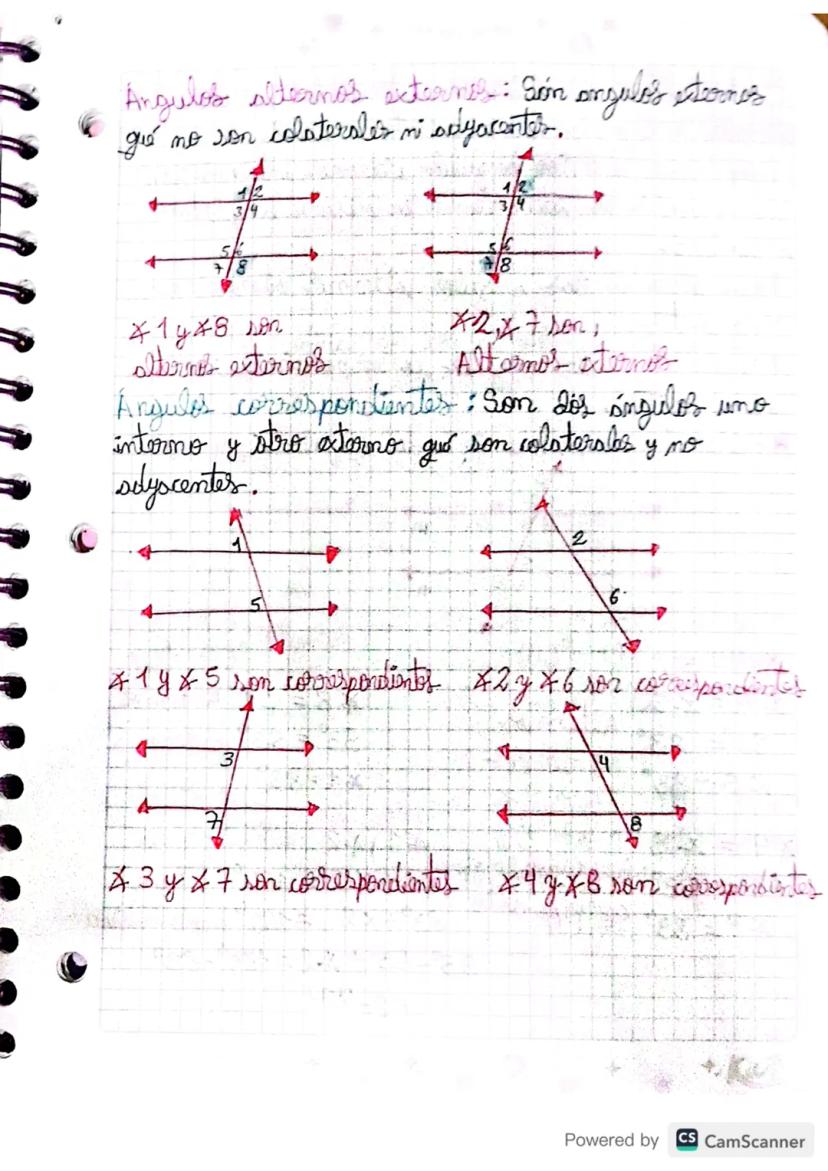 Ángulos alternos externos: Són angulos eternos
qué no son colaterales ni adyacentes.
1 2 1 2
3 4 3 4
5 6 5 6
7 8 7 8
∡1 y ∡8 son ∡2, ∡7 son,
alternos externos Alternos eternos
Ángulos correspondientes: Son dós ángulos uno
interno y otro externo qué son colaterales y no
adyacentes.
1 2
5 6
∡1 y ∡5 son correspondientes ∡2 y ∡6 son correspondientes
3 4
7 8
∡3 y ∡7 son correspondientes ∡4 y ∡8 son correspondientes
Powered by CS CamScanner